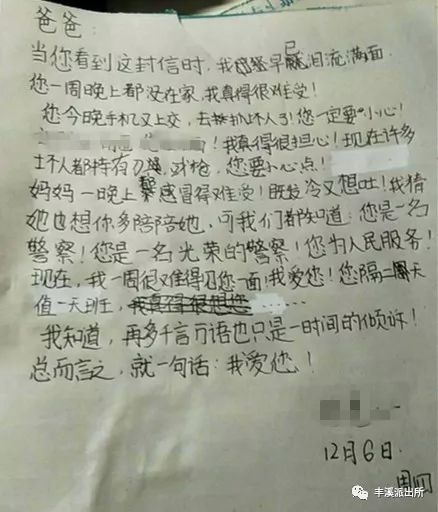 爸爸：
当您看到这封信时，我已早已泪流满面
您一周晚上都没在家，我真得很难受！
您今晚手机又上交，去抓坏人了！您一定要“小心！
！我真得很担心！现在许多
坏人都持有刀、枪，您要小心点！
妈妈一晚上感冒得难受！既发冷又想吐！我猜
她也想你多陪陪她，可我们都知道：您是一名
警察！您是一名光荣的警察！您为人民服务！
现在，我一周很难得见您一面！我爱您！您隔二天
值一天班，我真得很想您……
我知道，再多千言万语也只是一时间的倾诉！
总而言之，就一句话：我爱您！
12月6日.
周四
丰溪派出所